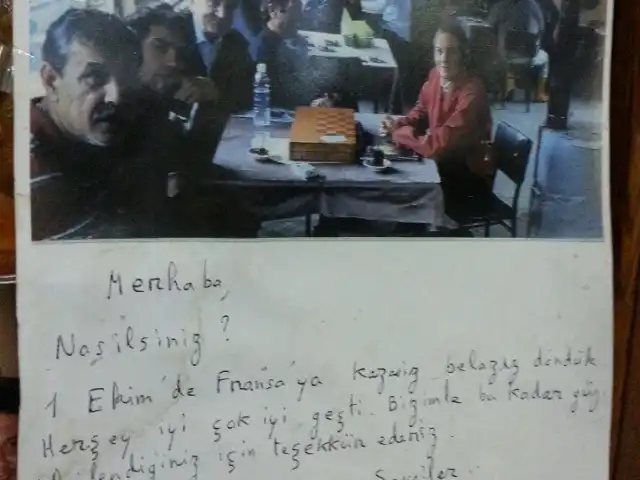 Merhaba,
Nasılsınız ?
1 Ekim'de Fransa'ya kazasız belasız döndük
Herşey iyi çok iyi geçti. Bizimle bu kadar
ilgilendiğiniz için teşekkür ederiz.
Sevgiler